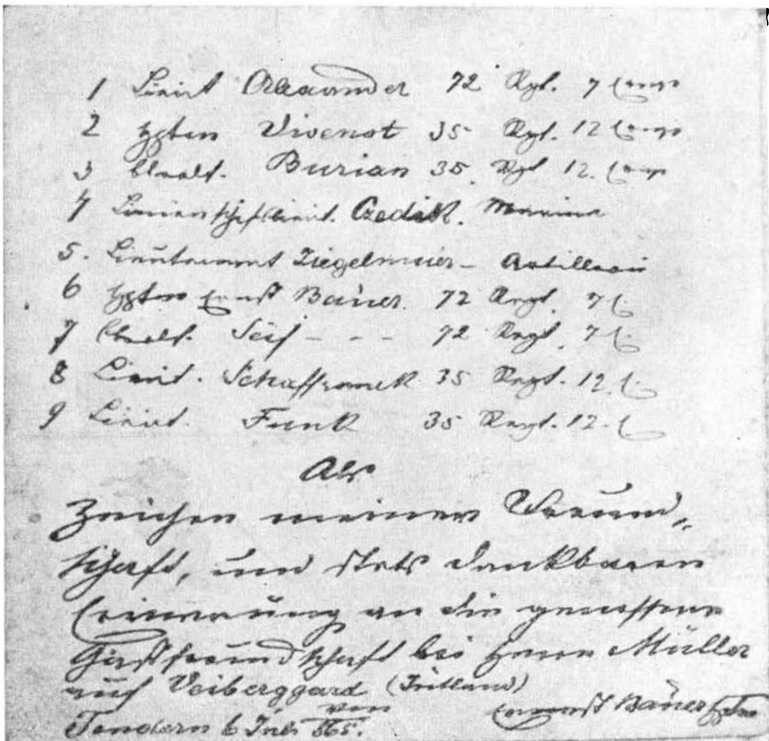 1 Lieut Alexander 72 Rgt. 7 Comp
2 Hptm Vivenot 35 Rgt. 12 Comp
3 Oblt. Burian 35 Rgt 12. Comp
4 Linienschifslieut. Czedik. Marine
5. Lieutenant Ziegelmeier – Artillerie
6 Hptm Ernst Bauer. 72 Regt. 7 C.
7 Oblt. Seif - - - 72 Regt. 7 C.
8 Lieut. Schaffranek 35 Regt. 12. C.
9 Lieut. Funk 35 Regt. 12. C.
Als
Zeichen meiner Freund„
schaft, und stets dankbaren
Erinnerung an die genossene
Gastfreundschaft bei Herrn Müller
auf Veiberggard (Jütland)
von
Tondern 6 865. Ernst Bauer Hptm